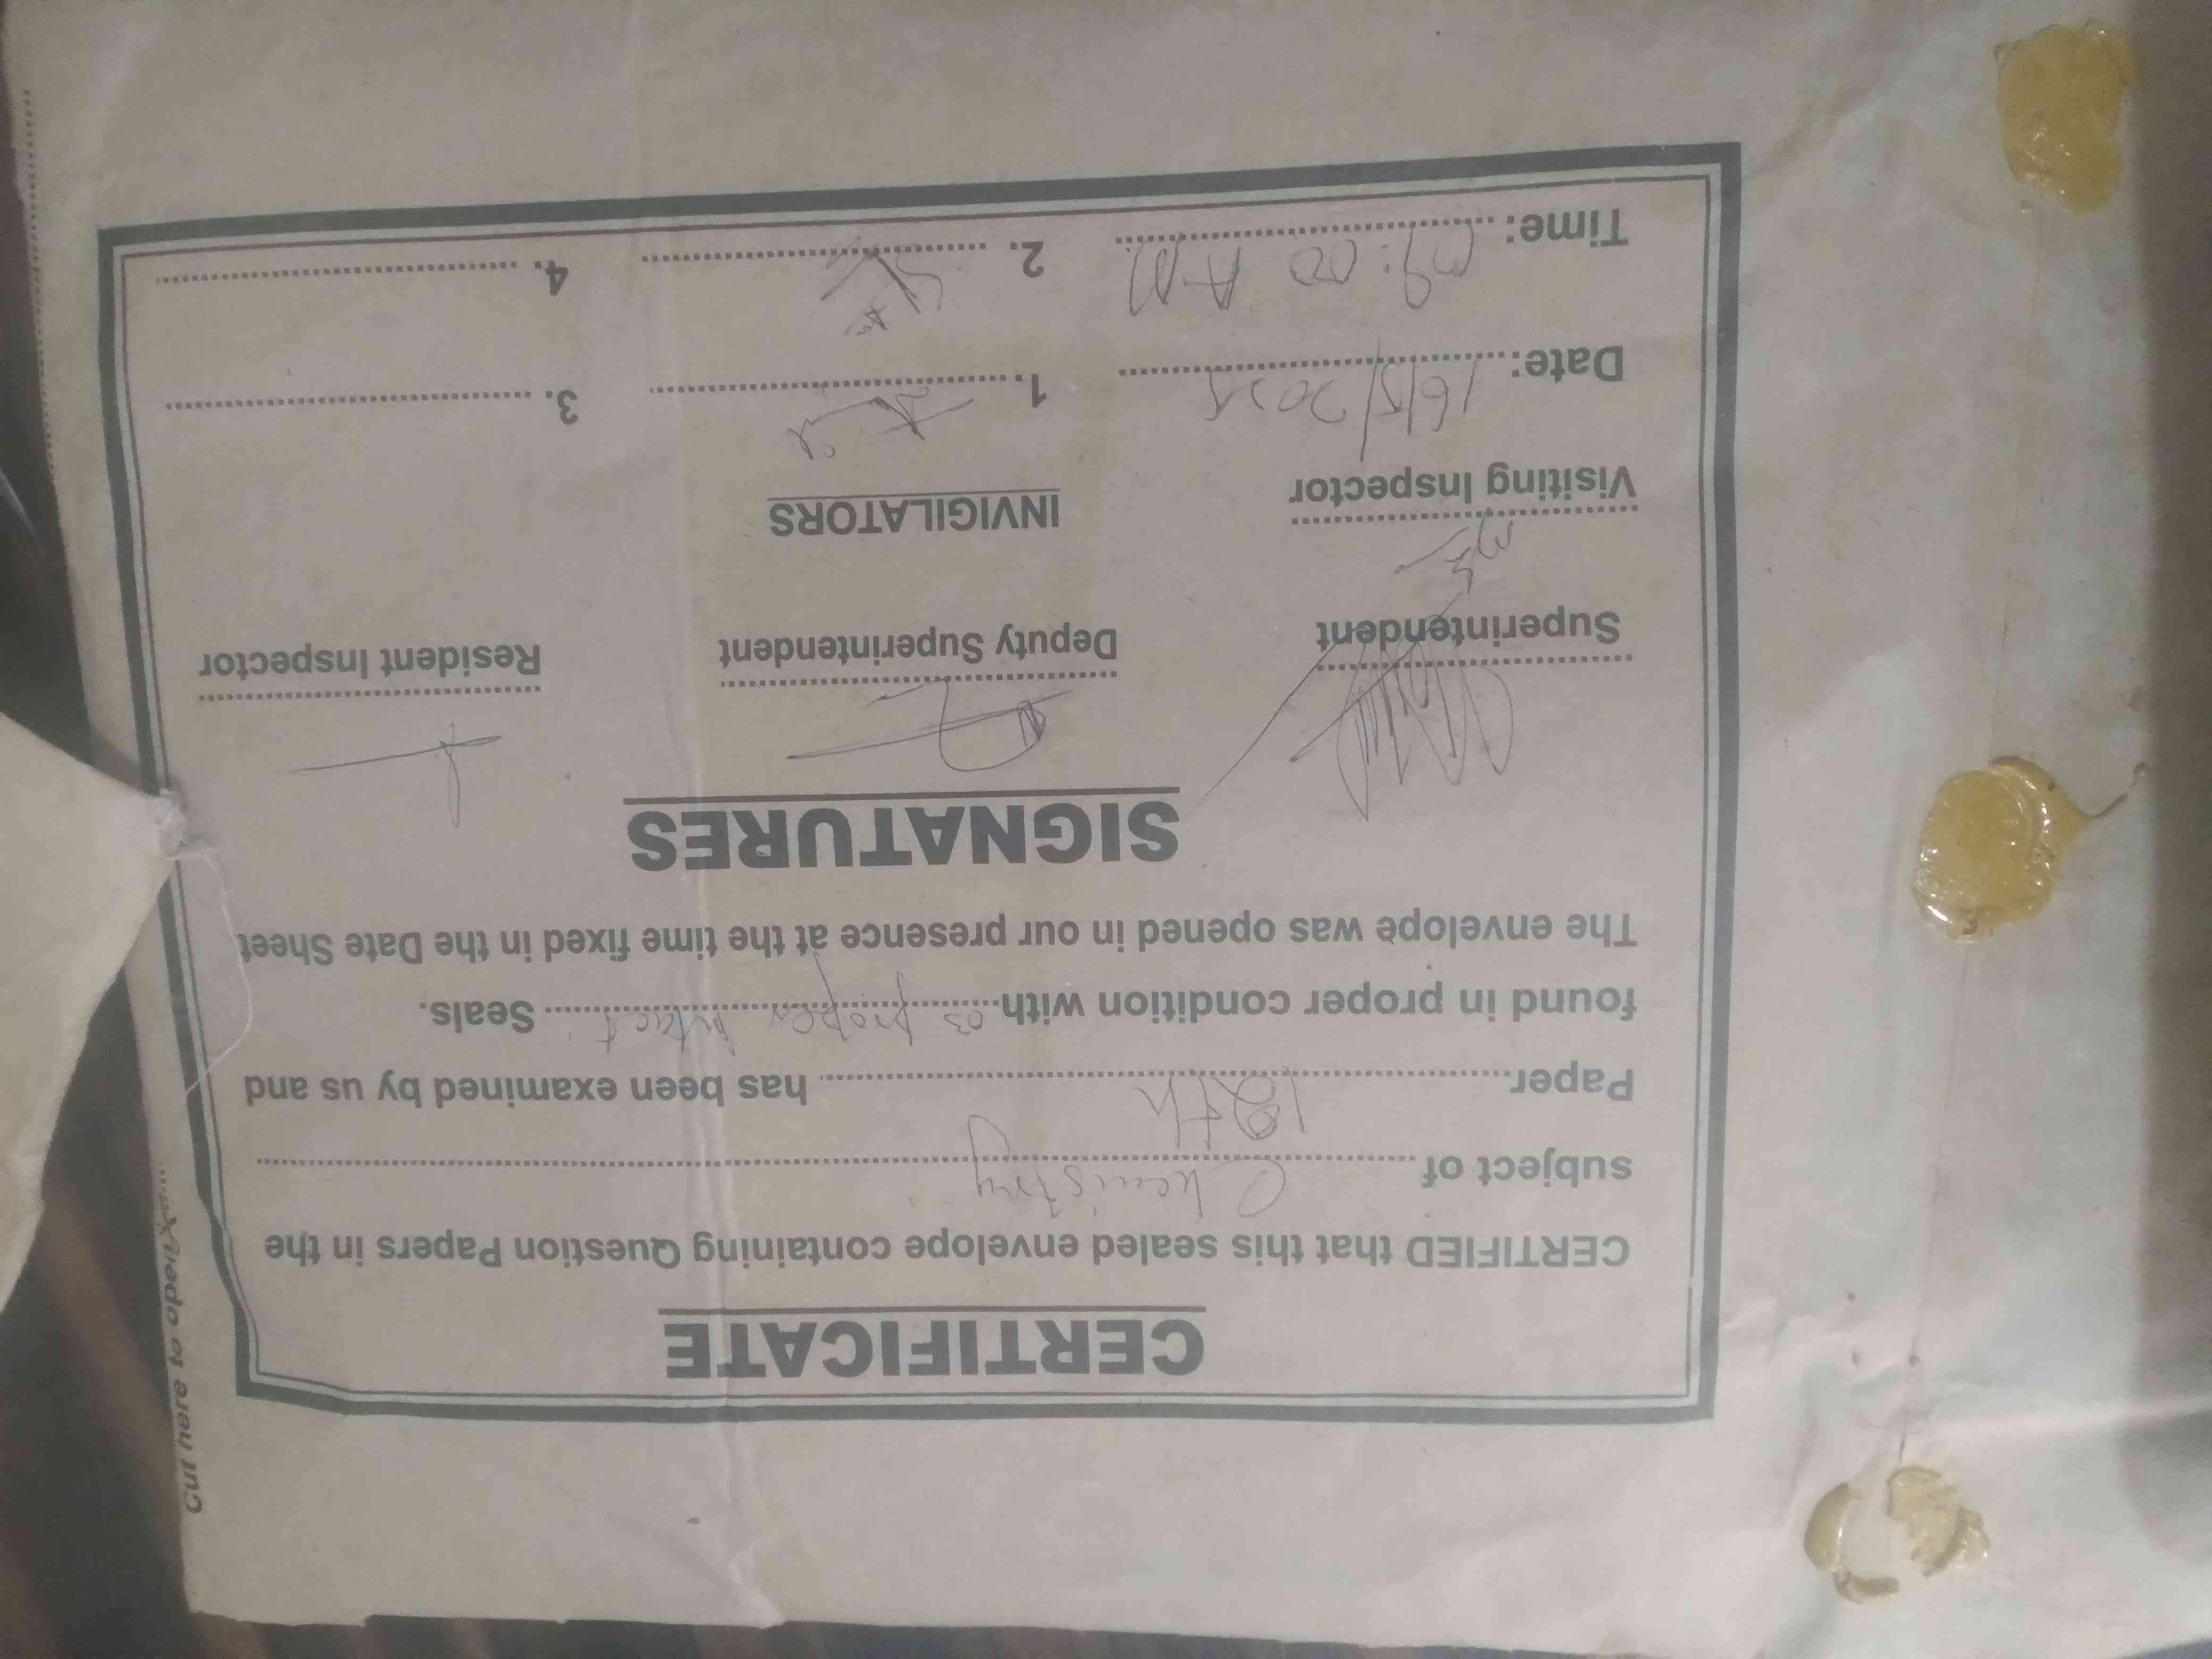 CERTIFICATE
CERTIFIED that this sealed envelope containing Question Papers in the
subject of Chemistry
Paper 12th has been examined by us and
found in proper condition with 03 proper intact Seals.
The envelope was opened in our presence at the time fixed in the Date Sheet
SIGNATURES
Superintendent Deputy Superintendent Resident Inspector
Visiting Inspector INVIGILATORS
Date: 16/5/2025 1. 3.
Time: 09:00 AM 2. 4.
Cut here to open